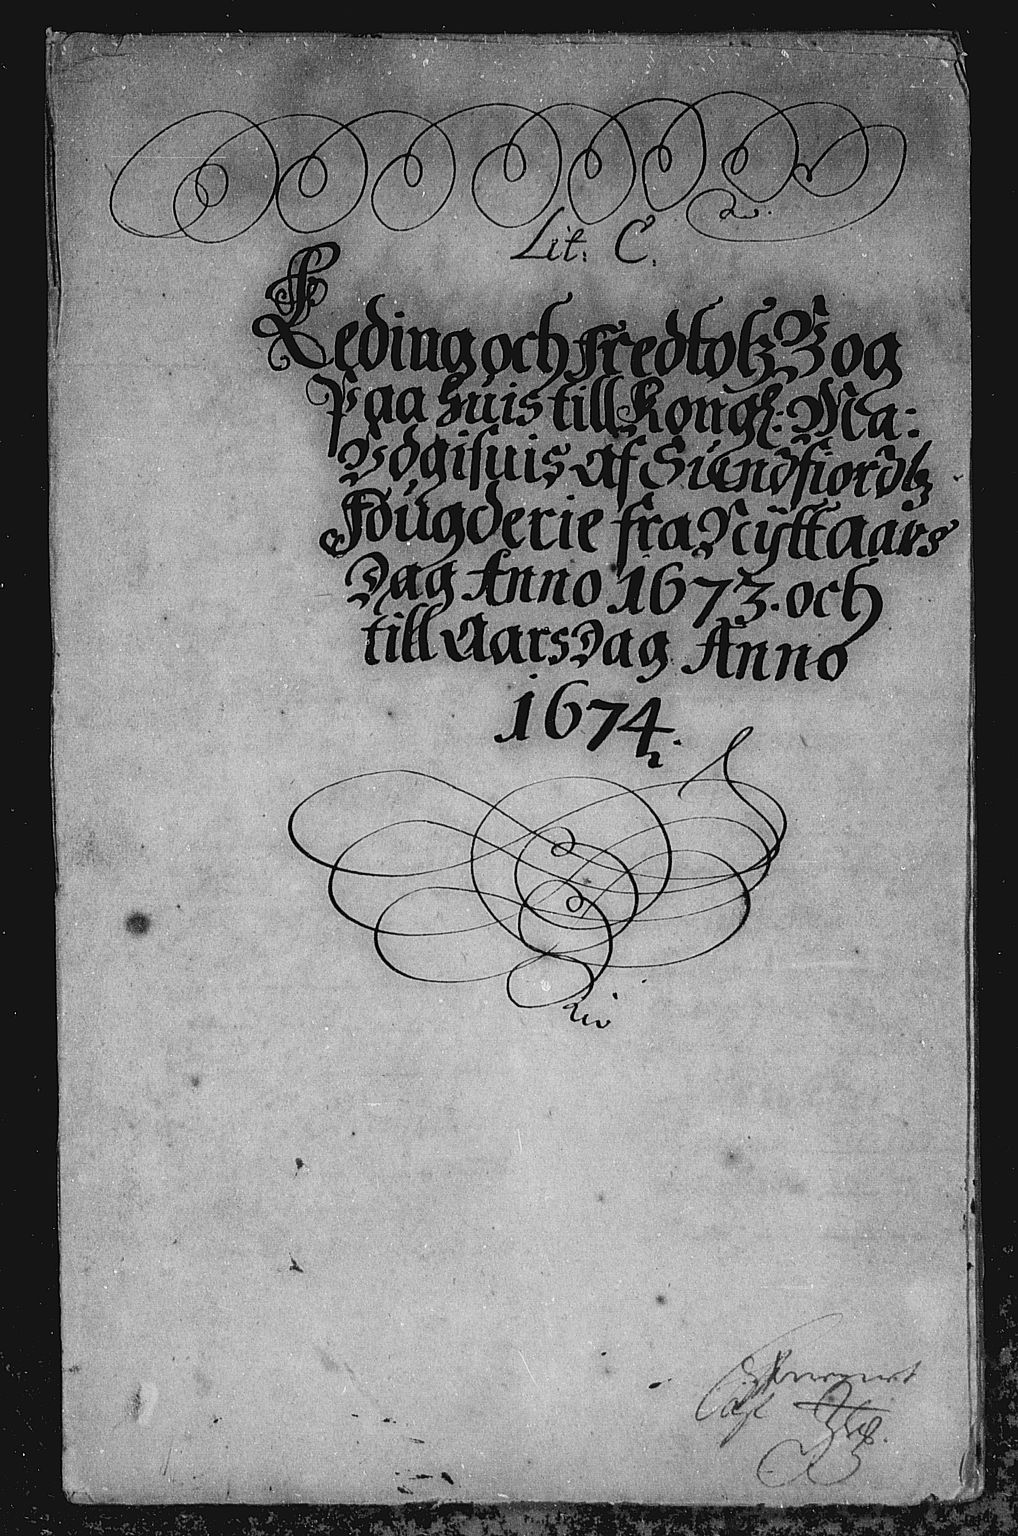 Lit. C.
Leding och Fredtolz Bog
Paa huis till Kongl: Ma:
Udgifuis Af Siundfiordtz
Fougderie fra Nÿttaars
Dag Anno 1673. och
till Aars Dag Anno
1674.